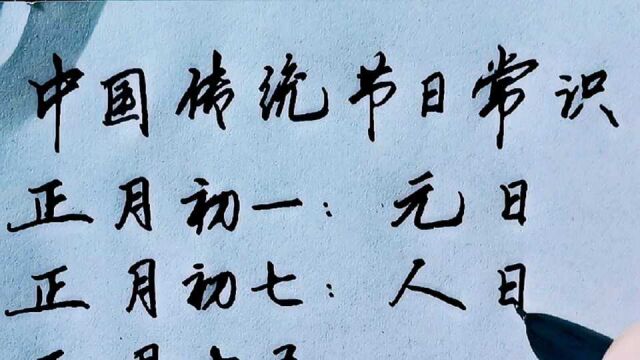 中国传统节日常识
正月初一：元日
正月初七：人日